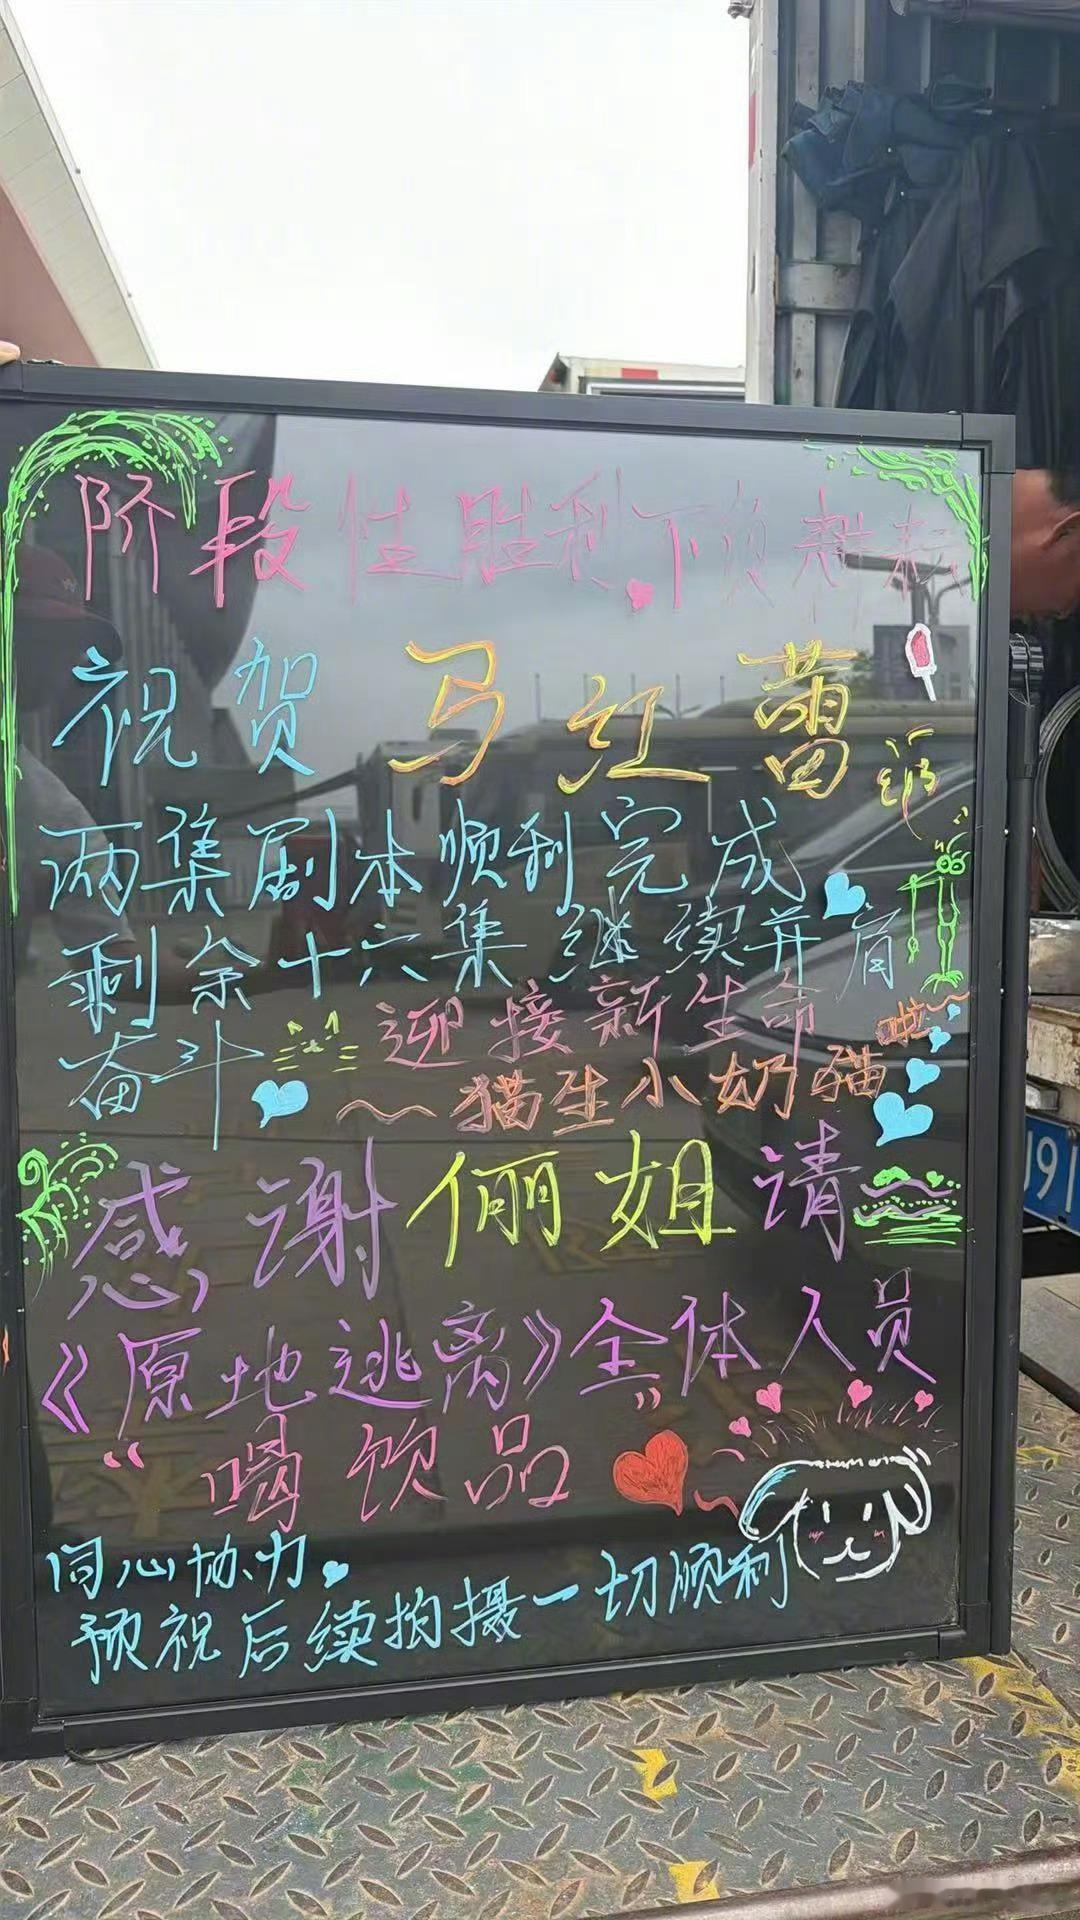 阶段性胜利 下
祝贺 马红蕾
两集剧本顺利完成
剩余十六集继续并肩
奋斗 迎接新生命啦～
～猫生小奶猫
感谢俪姐请
《原地逃离》全体人员
“喝饮品”
同心协力
预祝后续拍摄一切顺利
91